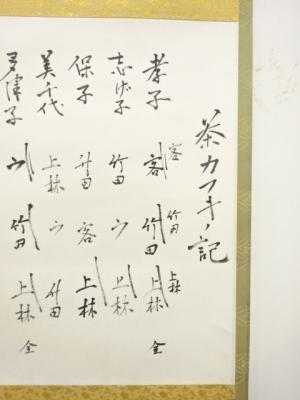 茶カフキノ記
客 竹田 上林
孝子 客 竹田 上林 全
志げ子 竹田 ウ 上林
保子 竹田 客 上林
美千代 上林 ウ 竹田
多津子 ウ 竹田 上林 全